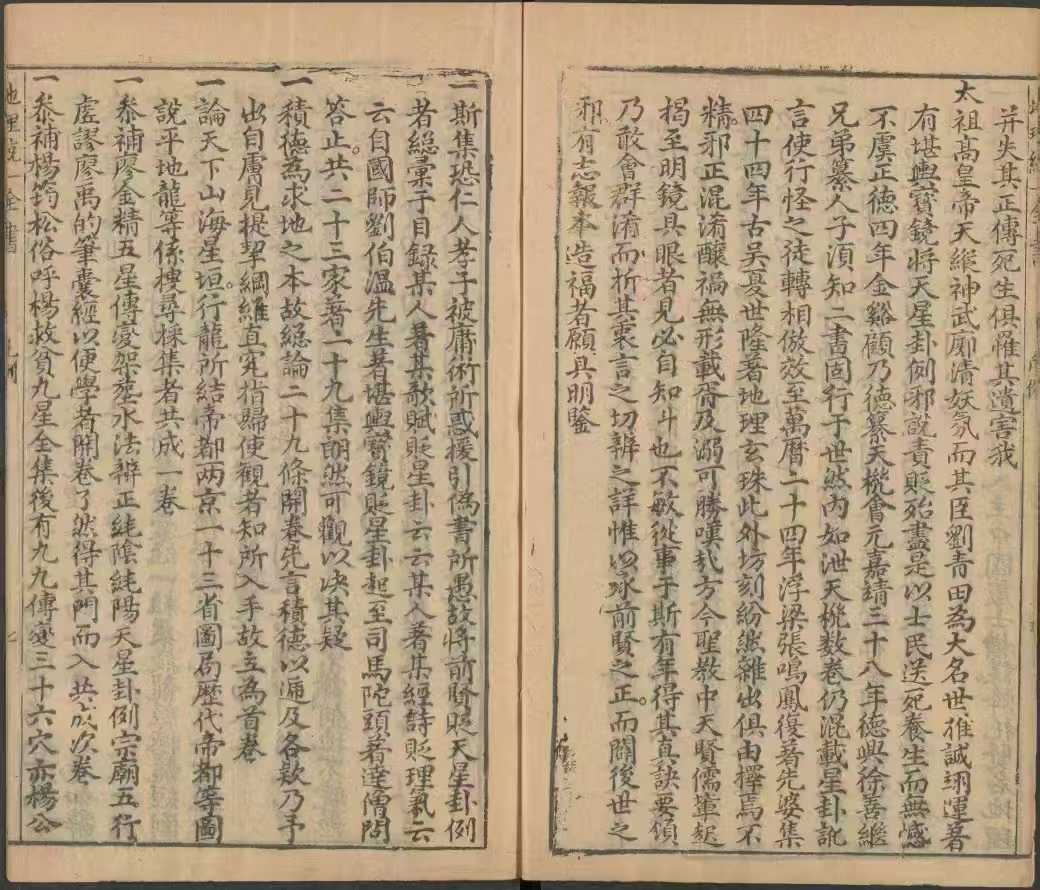 并失其正傳死生俱罹其遺害我
太祖高皇帝天縱神武廓清妖氛而其臣劉青田為大名世推誠翊運著
有堪輿寶鏡將天星卦例邪說責貶殆盡是以士民送死養生而無憾
不虞正德四年金谿顧乃德纂天機會元嘉靖三十八年德興徐善繼
兄弟纂人子須知二書固行于世然內如泄天機数卷仍混載星卦訛
言使行怪之徒轉相倣效至萬曆二十四年浮梁張鳴鳳復著先婆集
四十四年古吳夏世隆著地理玄珠此外坊刻紛然雜出俱由擇焉不
精。邪正混淆釀禍無形載胥及溺可勝嘆哉方今聖教中天賢儒輩起
揭至明鏡具眼者見必自知斗也不敏從事于斯有年得其真訣要領
乃敢會群淆而折其衷言之切辨之詳惟以承前賢之正。而闢後世之
邪。有志報本造福者願具明鑒
一斯集恐仁人孝子被庸術所惑援引偽書所愚故將前賢貶天星卦例
者總彙于目錄某人著某歌賦貶星卦云云某人著某經詩貶理氣云
云自國師劉伯溫先生著堪輿寶鏡貶星卦起至司馬陀頭著達僧問
答止共二十三家著一十九集朗然可觀以决其疑
一積德為求地之本故總論二十九條開卷先言積德以遍及各欵乃予
出自膚見提挈綱維直究指歸使觀者知所入手故立為首卷
一論天下山海星垣。行龍所結帝都两京一十三省圖局歷代帝都等圖
說平地龍等係搜尋採集者共成一卷
一叅補廖金精五星傳變架塟水法辨正純陰純陽天星卦例宗廟五行
虛謬廖禹的筆囊經以便學者開卷了然得其門而入共成次卷
一叅補楊筠松俗呼楊救貧九星全集後有九九傳變三十六穴亦楊公